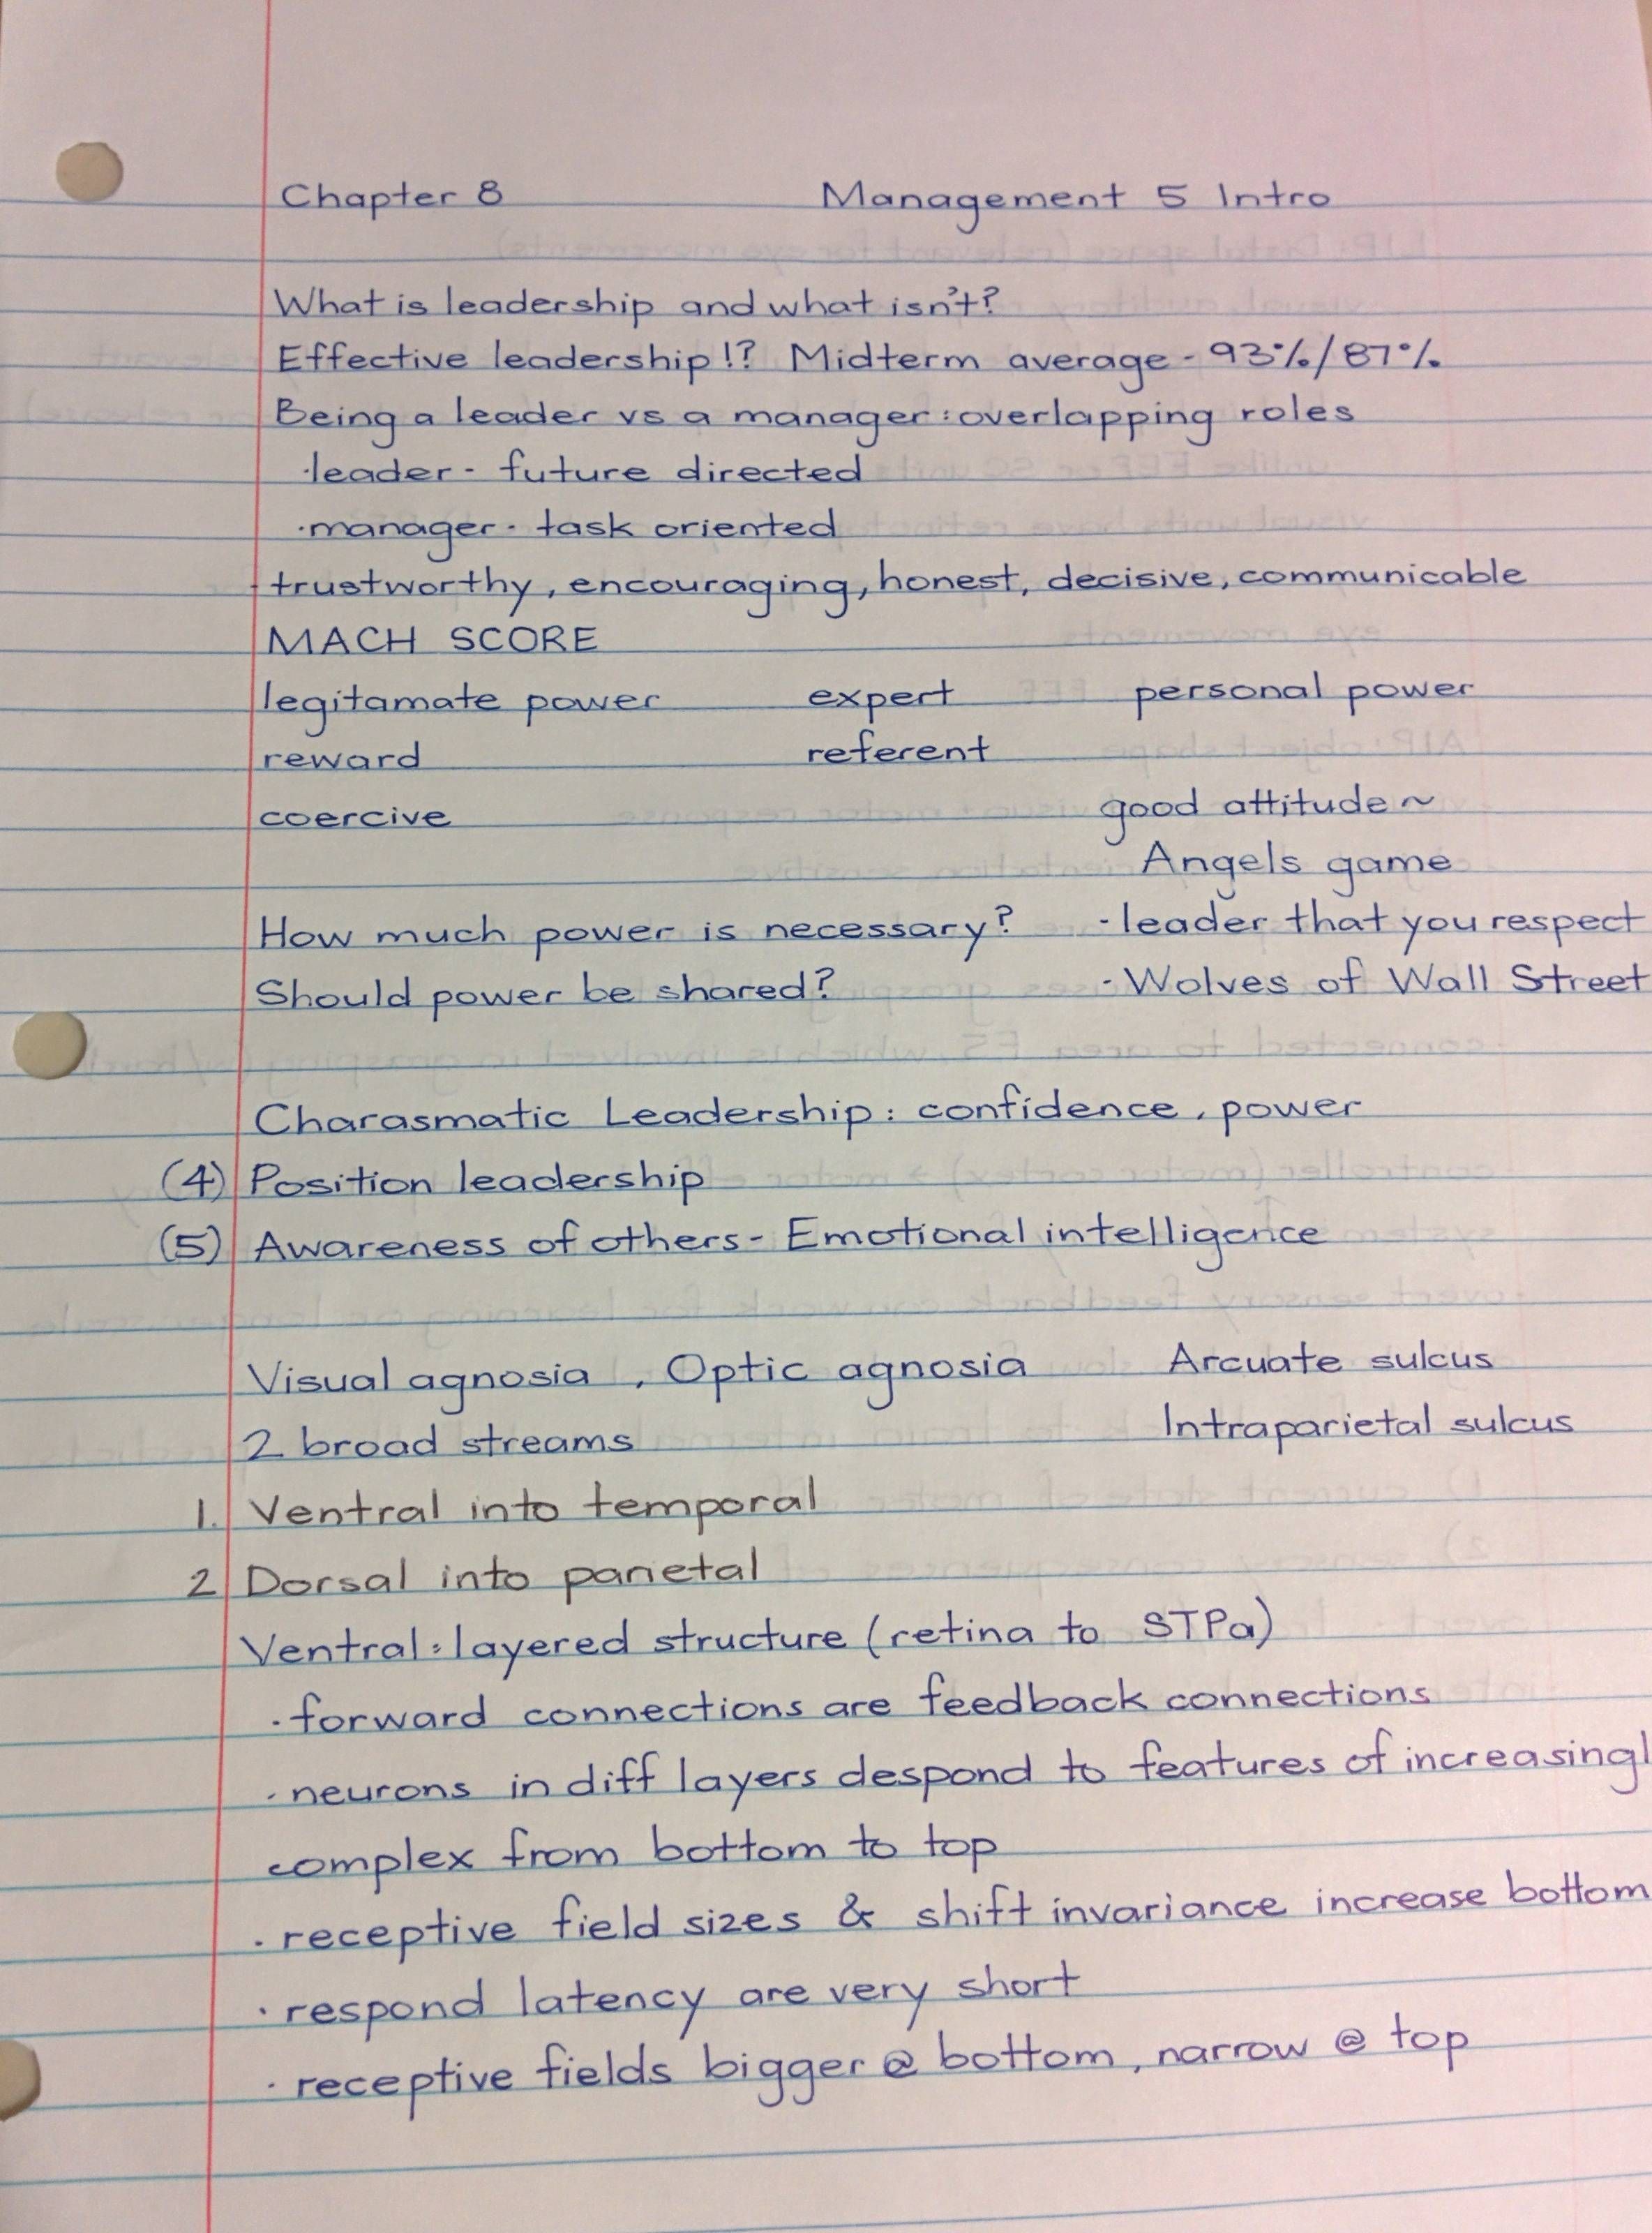 Chapter 8 Management 5 Intro
What is leadership and what isn't?
Effective leadership!? Midterm average - 93%/87%
Being a leader vs a manager: overlapping roles
·leader - future directed
·manager - task oriented
trustworthy, encouraging, honest, decisive, communicable
MACH SCORE
legitamate power expert personal power
reward referent
coercive good attitude ~
Angels game
How much power is necessary? - leader that you respect
Should power be shared? - Wolves of Wall Street
Charasmatic Leadership: confidence, power
(4) Position leadership
(5) Awareness of others - Emotional intelligence
Visual agnosia, Optic agnosia Arcuate sulcus
2 broad streams Intraparietal sulcus
1. Ventral into temporal
2 Dorsal into parietal
Ventral: layered structure (retina to STPa)
· forward connections are feedback connections
· neurons in diff layers despond to features of increasingl
complex from bottom to top
· receptive field sizes & shift invariance increase bottom
· respond latency are very short
· receptive fields bigger @ bottom, narrow @ top